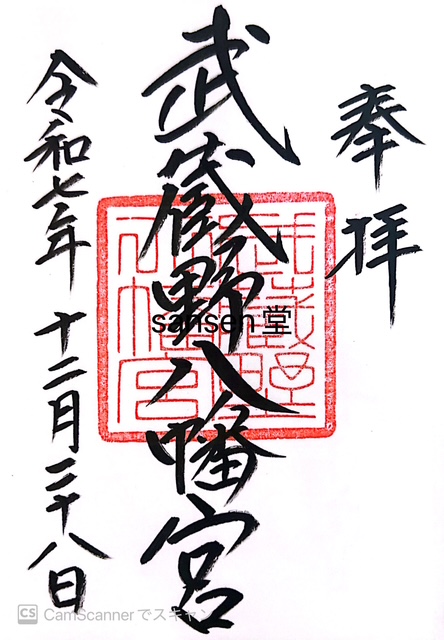 奉拝
武蔵野八幡宮
令和七年十二月二十八日
武蔵野八幡宮
sansen 堂
CS CamScannerでスキャン